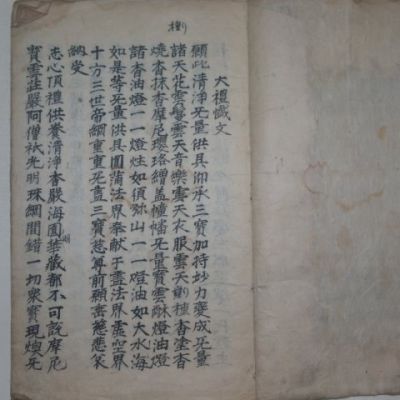 大檀懺文
願此清淨旡量供具仰承三寶加持妙力變成旡量
諸天花雲鬘雲天音樂雲天衣服雲天劎種杳塗杳
燒杳抹杳摩尼瓔珞繒盖幢幡旡量寶雲酥燈油燈
諸杳油燈一一燈炷如須弥山一一燈油如大水海
如是等旡量供具圓蒲法界奉献于盡法界虛空界
十方三世帝網重重旡盡三寶慈尊前願垂慈悲哀
納受
志心頂禮供養清淨杳嚴海圓藏都不可說摩尼
寶雲莊嚴阿僧祇光明珠網間錯一切衆寳現旡